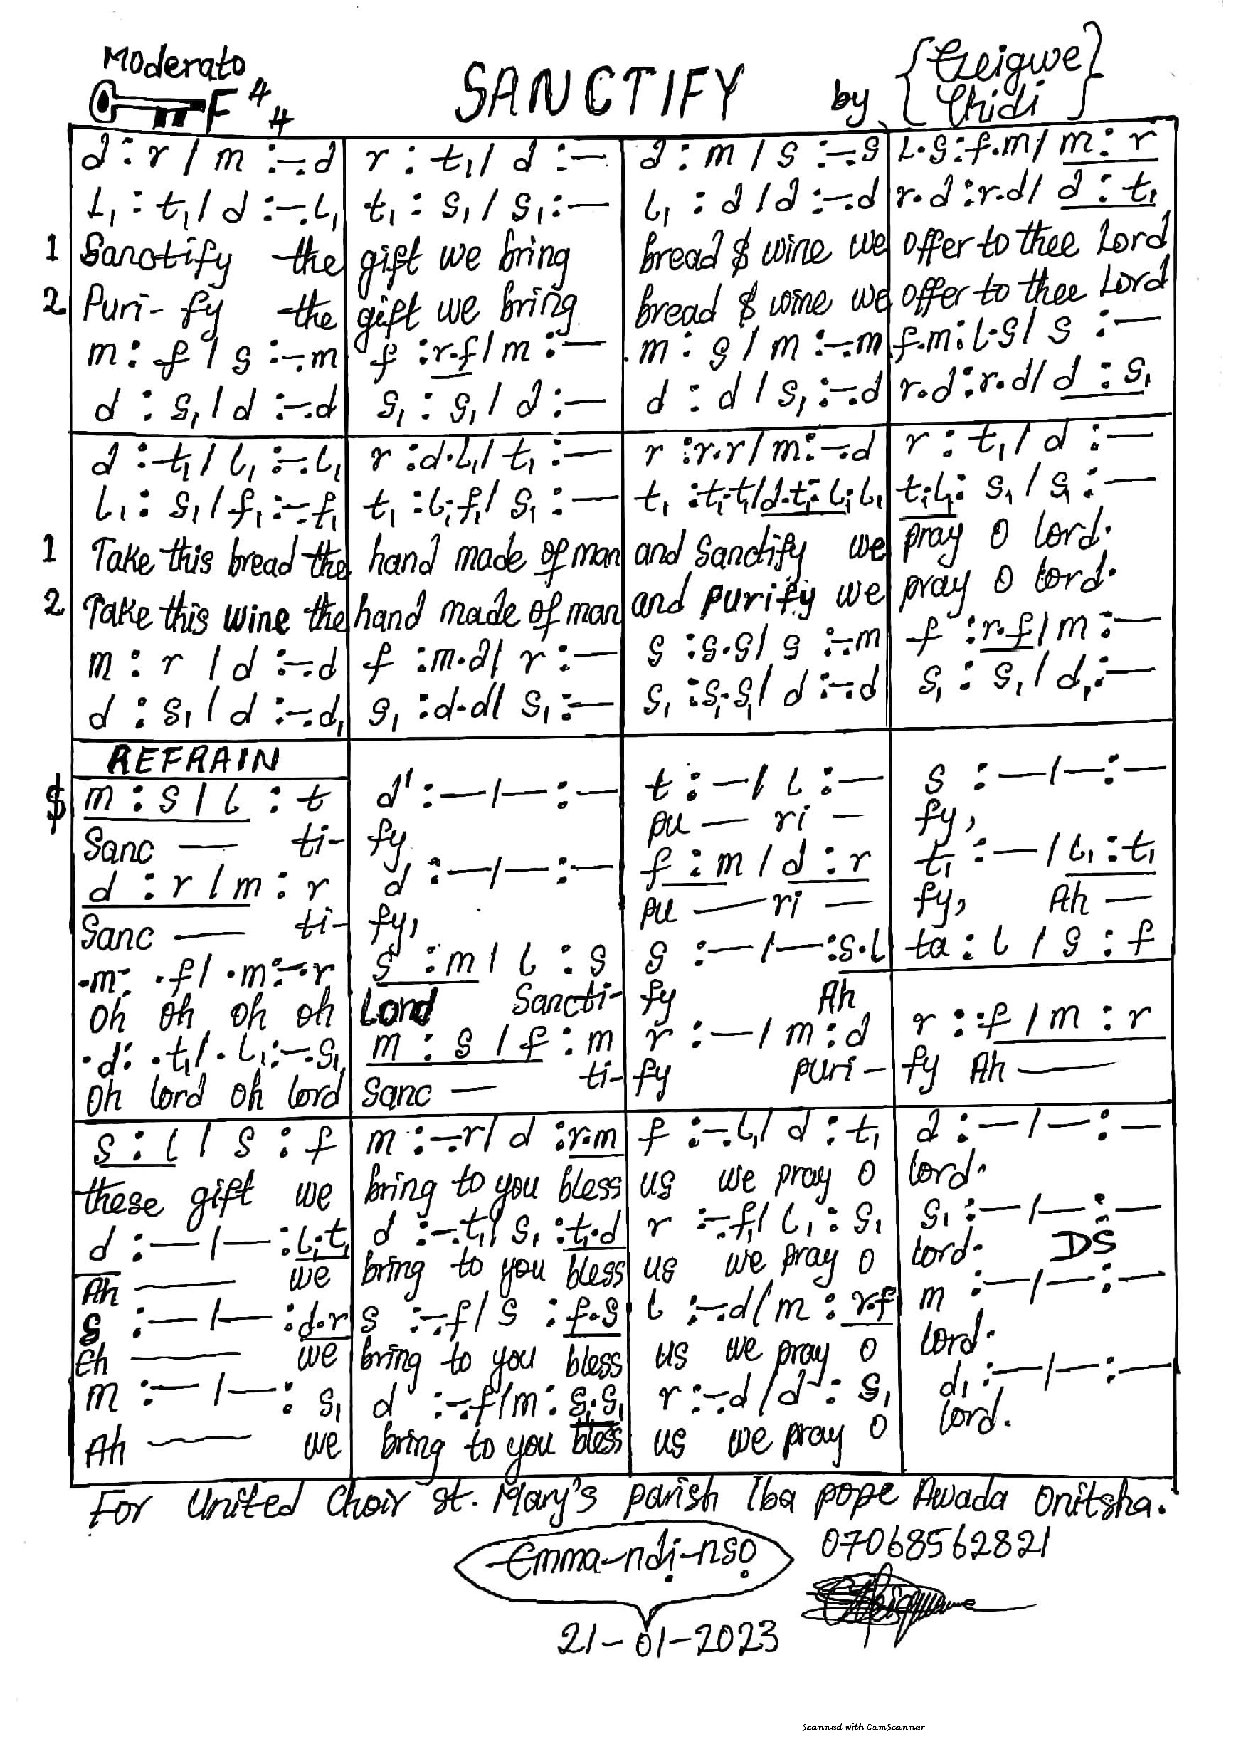 Moderato
F 4/4
SANCTIFY
by {Ezeigwe Chidi}
d : r / m :-.d | r : t₁ / d :— | d : m / s :-.s | l.s:f.m / m : r
l₁ : t₁ / d :-.l₁ | t₁ : s₁ / s₁:— | l₁ : d / d :-.d | r.d :r.d / d : t₁
1 Sanctify the | gift we bring | bread & wine we | offer to thee Lord
2 Puri- fy the | gift we bring | bread & wine we | offer to thee Lord
m : f / s :-.m | f :r.f / m :— | m : s / m :-.m | f.m:l.s / s :—
d : s₁ / d :-.d | s₁ : s₁ / d :— | d : d / s₁ :-.d | r.d :r.d / d : s₁
d :-t₁ / l₁ :-.l₁ | r :d.l₁ / t₁ :— | r :r.r / m:-.d | r : t₁ / d :—
l₁ : s₁ / f₁ :-.f₁ | t₁ :l₁.f₁ / s₁ :— | t₁ :t₁.t₁ / d.t₁:l₁.l₁ | t₁.l₁: s₁ / s₁ :—
1 Take this bread the | hand made of man | and Sanctify we | pray O lord.
2 Take this wine the | hand made of man | and purify we | pray O lord.
m : r / d :-.d | f :m.d / r :— | s :s.s / s :-.m | f :r.f / m :—
d : s₁ / d :-.d₁ | s₁ :d.d / s₁ :— | s₁ :s₁.s₁ / d :-.d | s₁ : s₁ / d₁:—
REFRAIN
$ m : s / l : t | d' :—/—:— | t :—/ l :— | s :—/—:—
Sanc — ti- | fy | pu — ri — | fy,
d : r / m : r | d :—/—:— | f : m / d : r | t₁ :—/ l₁ : t₁
Sanc — ti- | fy, | pu — ri — | fy, Ah —
.m: .f / .m:-.r | s : m / l : s | s :—/—:s.l | ta : l / s : f
oh oh oh oh | Lord Sancti- | fy Ah
.d: .t₁ / .l₁:-.s₁ | m : s / f : m | r :—/ m : d | r : f / m : r
oh lord oh lord | Sanc — ti- | fy puri- | fy Ah —
s : l / s : f | m :-.r / d :r.m | f :-.l₁ / d : t₁ | d :—/—:—
these gift we | bring to you bless | us we pray O | lord.
d :—/—:l₁.t₁ | d :-.t₁ / s₁ :t₁.d | r :-.f₁ / l₁ : s₁ | s₁ :—/—:—
Ah — we | bring to you bless | us we pray O | lord. DS
s :—/—:d.r | s :-.f / s :f.s | l :-.d / m : r.f | m :—/—:—
Eh — we | bring to you bless | us we pray O | lord.
m :—/—: s₁ | d :-.f / m : s₁.s₁ | r :-.d / d : s₁ | d₁ :—/—:—
Ah — we | bring to you bless | us we pray O | lord.
For United Choir st. Mary's parish Iba pope Awada Onitsha.
Emma-ndi-nsọ
07068562821
21-01-2023
Scanned with CamScanner